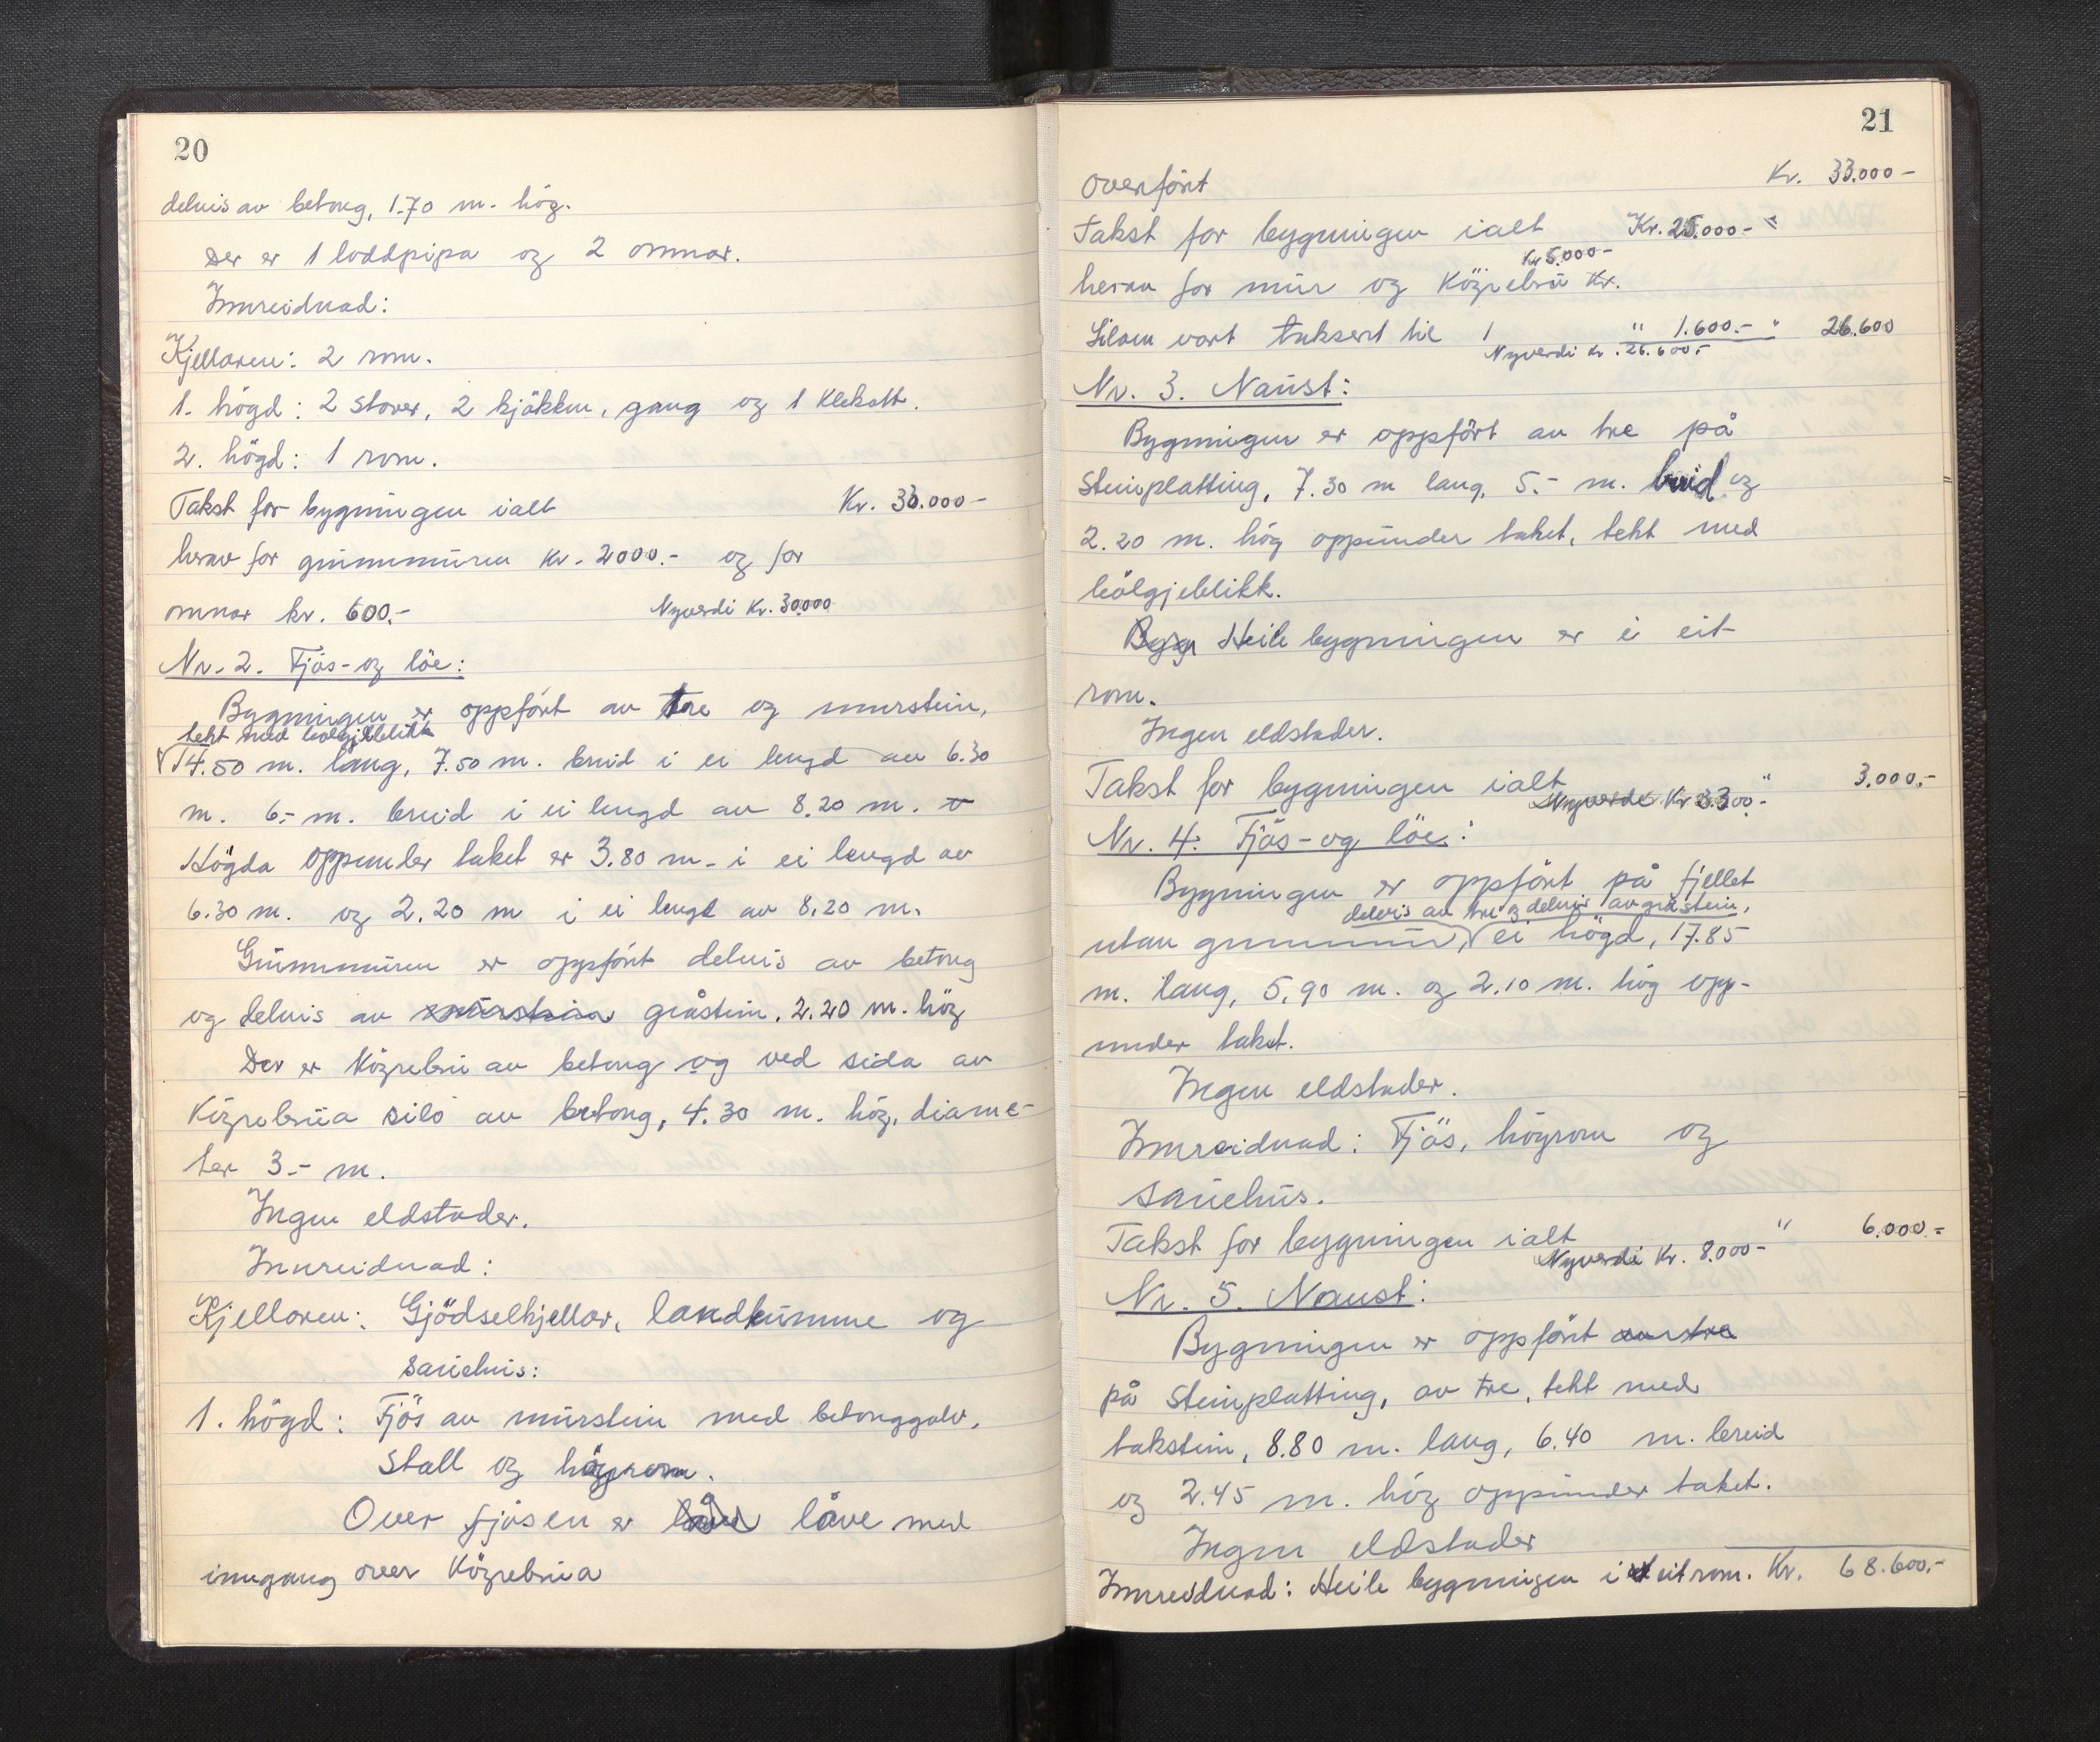 20
delvis av betong, 1.70 m. hög.
Der er 1 loddpipa og 2 omnar.
Innreidnad:
Kjellaren: 2 rom.
1. högd: 2 stover, 2 kjökken, gang og 1 klekott.
2. högd: 1 rom.
Takst for bygningen ialt Kr. 33.000-
herav for grunnmuren kr. 2000.- og for
omnar kr. 600.- Nyverdi Kr. 30.000
Nr. 2. Fjös- og löe:
Bygningen er oppfört av tre og murstein,
tekt med bölgjeblikk
14.50 m. lang, 7.50 m. breid i ei lengd av 6.30
m. 6.- m. breid i ei lengd av 8.20 m.
Högda oppunder taket er 3.80 m. i ei lengd av
6.30 m. og 2.20 m i ei lengd av 8.20 m.
Grunnmuren er oppfört delvis av betong
og delvis av murstein gråstein. 2.20 m. hög
Der er köyrebru av betong og ved sida av
köyrebrua silo av betong, 4.30 m. hög, diame-
ter 3.- m.
Ingen eldstader.
Innreidnad:
Kjellaren: Gjödselkjellar, landkumme og
sauehus:
1. högd: Fjös av murstein med betonggolv,
stall og höyrom.
Over fjösen er låve låve med
inngang over köyrebrua
21
Overfört Kr. 33.000-
Takst for bygningen ialt Kr. 25.000- "
Kr 5.000-
herav for mur og köyrebru Kr.
Siloen vart taksert til " 1.600.- " 26.600
Nyverdi kr. 26.600.-
Nr. 3. Naust:
Bygningen er oppfört av tre på
steinplatting, 7.30 m lang, 5.- m. breid og
2.20 m. hög oppunder taket, tekt med
bölgjeblikk.
Bygn Heile bygningen er i eit
rom.
Ingen eldstader.
Takst for bygningen ialt " 3.000.-
Nyverdi Kr 3.300.-
Nr. 4. Fjös- og löe:
Bygningen er oppfört på fjellet
delvis av tre og delvis av gråstein,
utan grunnmur, ei högd, 17.85
m. lang, 5.90 m. og 2.10 m. hög opp-
under taket.
Ingen eldstader.
Innreidnad: Fjös, höyrom og
sauehus.
Takst for bygningen ialt " 6.000.-
Nyverdi Kr. 8.000-
Nr. 5. Naust:
Bygningen er oppfört av tre
på steinplatting, av tre, tekt med
takstein, 8.80 m. lang, 6.40 m. breid
og 2.45 m. hög oppunder taket.
Ingen eldstader
Innreidnad: Heile bygningen i eit rom. Kr. 68.600.-